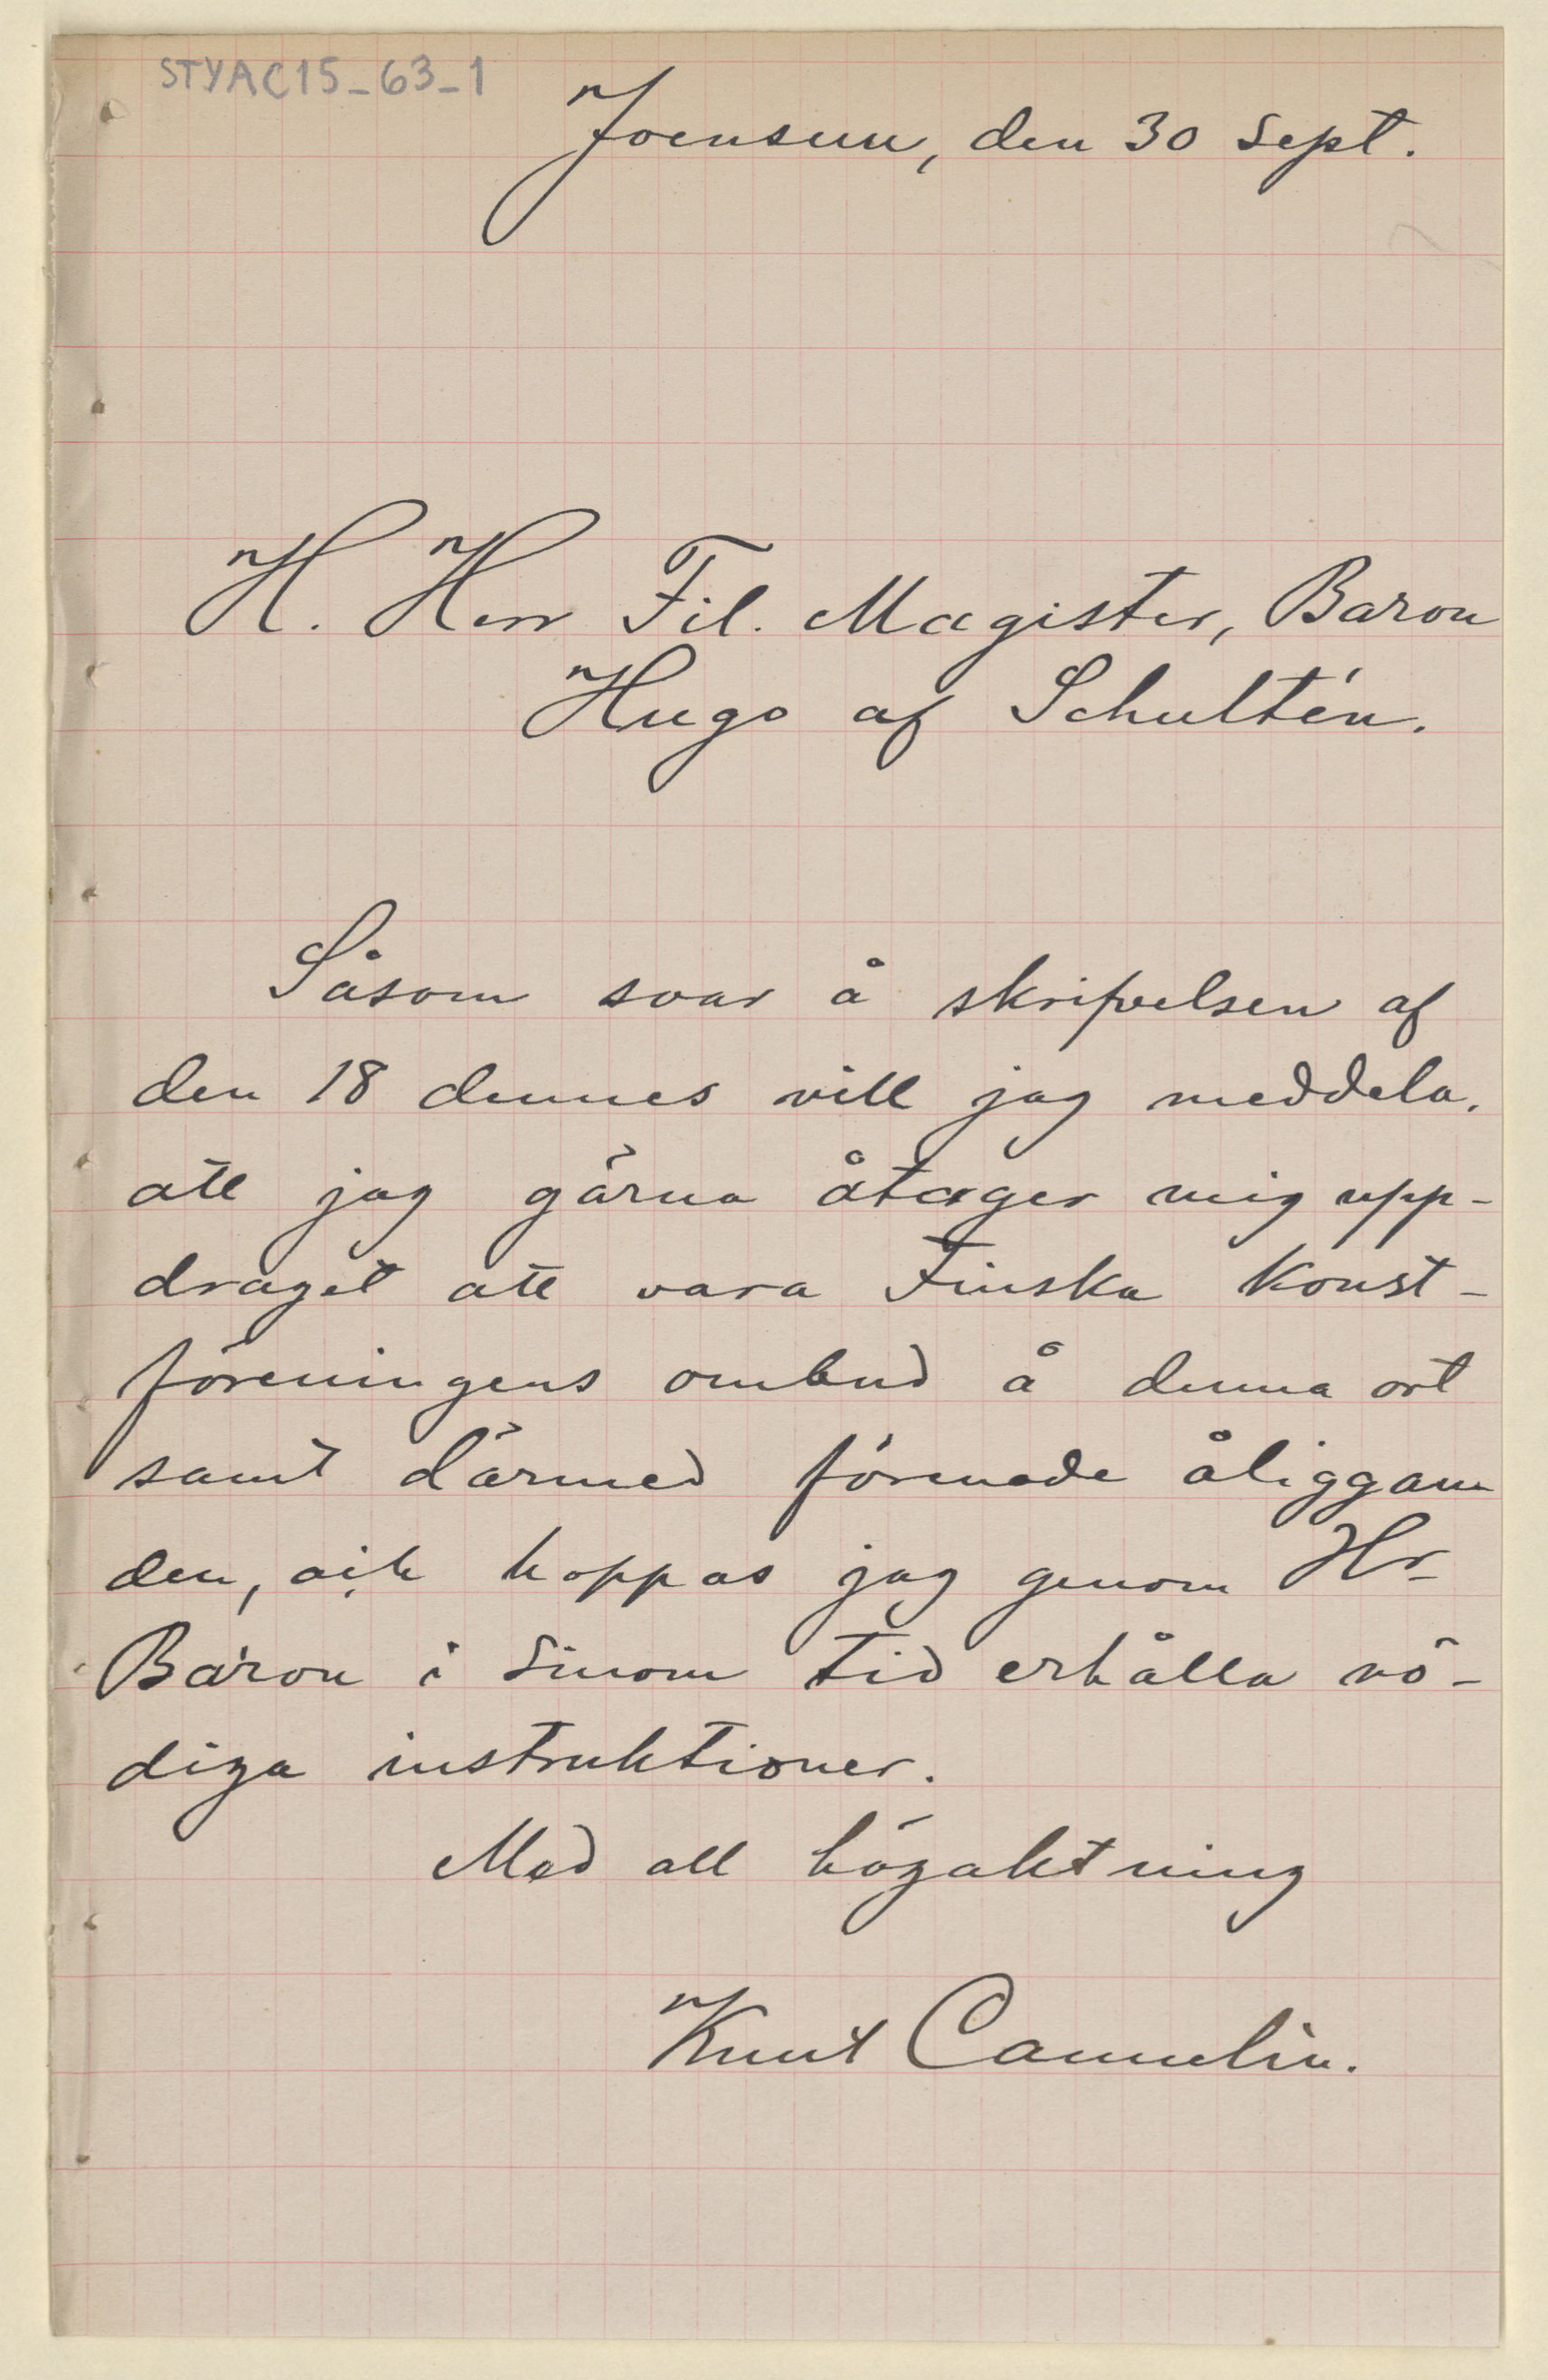 STYAC15_63_1
Joensuu, den 30 Sept.
H. Herr Fil. Magister, Baron
Hugo af Schultén.
Såsom svar å skrifvelsen af
den 18 dennes vill jag meddela,
att jag gärna åtager mig upp-
draget att vara Finska Konst-
föreningens ombud å denna ort
samt därmed förenade åliggan
den, och hoppas jag genom Hr
Baron i sinom tid erhålla nö-
diga instruktioner.
Med all högaktning
Knut Cannelin.